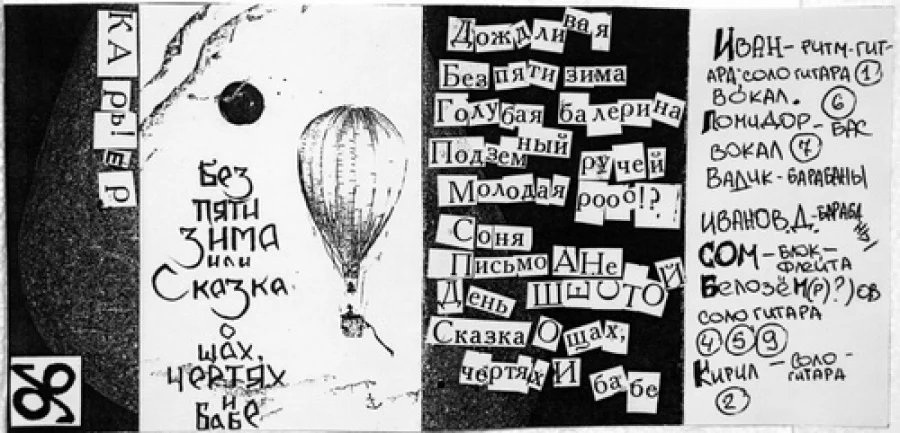 КАрь!ер
96
Без
пяти
зима
или
Сказка
о
щах,
чертях
и
бабе
Дождливая
Без пяти зима
Голубая балерина
Подземный ручей
Молодая рооо!?
Соня
Письмо А Не
День ШЕСТОЙ
Сказка О щах,
чертях И бабе
Иван - ритм-гит-
ара; соло гитара 1
вокал. 6
Помидор - бас
вокал 7
Вадик - барабаны
Иванов.Д. - барабаны
СОМ - блок-
флейта
Белозём(р)?)ов
соло гитара
4 5 9
Кирил - соло-
гитара
2